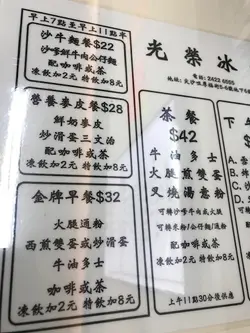 早上7點至早上11點半
沙牛麵餐$22
沙爹鮮牛肉公仔麵
配咖啡或茶
凍飲加2元 特飲加8元
營養麥皮餐$28
鮮奶麥皮
炒滑蛋三文治
配咖啡或茶
凍飲加2元 特飲加8元
金牌早餐$32
火腿通粉
西煎雙蛋或炒滑蛋
牛油多士
咖啡或茶
凍飲加2元 特飲加8元
光榮冰
電話: 2422 6555
茶餐
$42
牛油多士
火腿煎雙蛋
叉燒湯意粉
可轉沙爹牛肉或火腿
可轉米粉/公仔麵/通粉
配咖啡或茶
凍飲加2元 特飲加8元
上午11點30分後供應
下
A.
B.
C.
D.